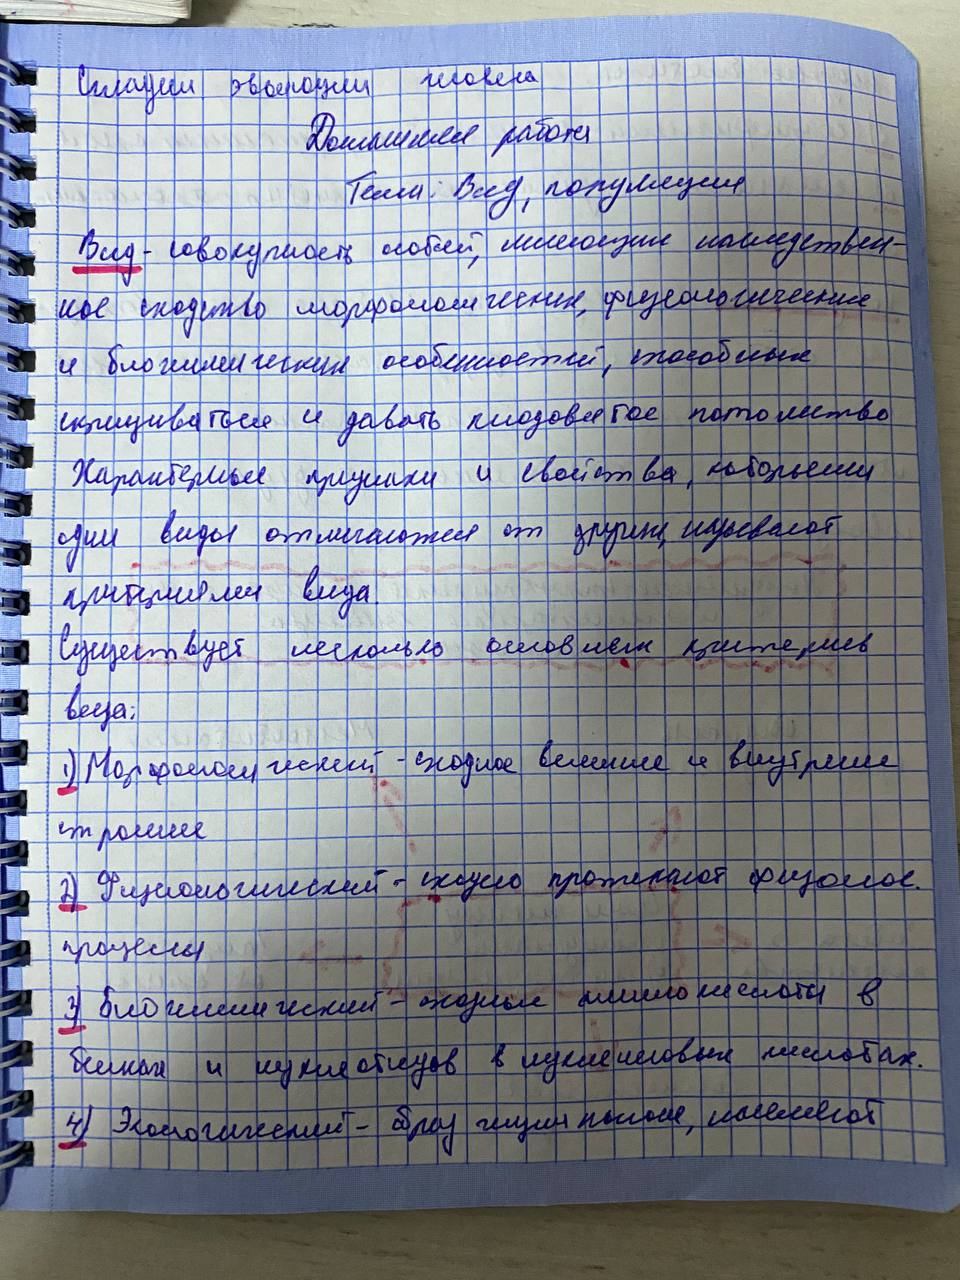 Стадии эволюции человека
Домашняя работа
Тема: Вид, популяция
Вид - совокупность особей, имеющих наследствен-
ное сходство морфологических, физиологических
и биохимических особенностей, способных
скрещиваться и давать плодовитое потомство
Характерные признаки и свойства, которыми
одни виды отличаются от других, называют
критериями вида.
Существует несколько основных критериев
вида:
1) Морфологический - сходное внешнее и внутренне
строение
2) Физиологический - сходно протекают физиолог.
процессы
3) Биохимический - сходные аминокислоты в
белках и нуклеотидов в нуклеиновых кислотах.
4) Экологический - образ жизни похож, населяют